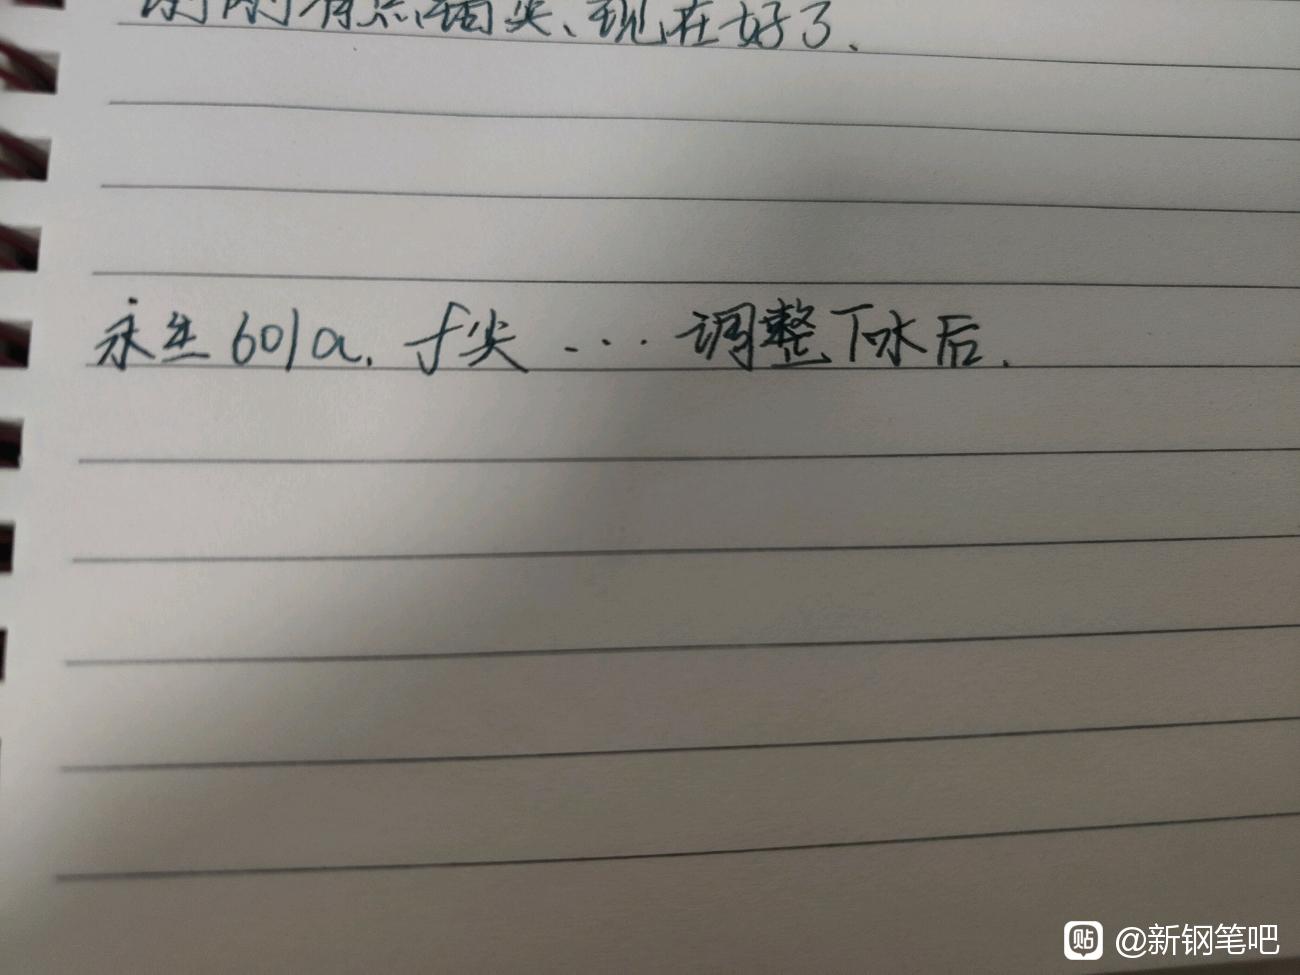 刚刚有点漏尖、现在好了.
永生601a. f尖 ... 调整下水后.
贴 @新钢笔吧